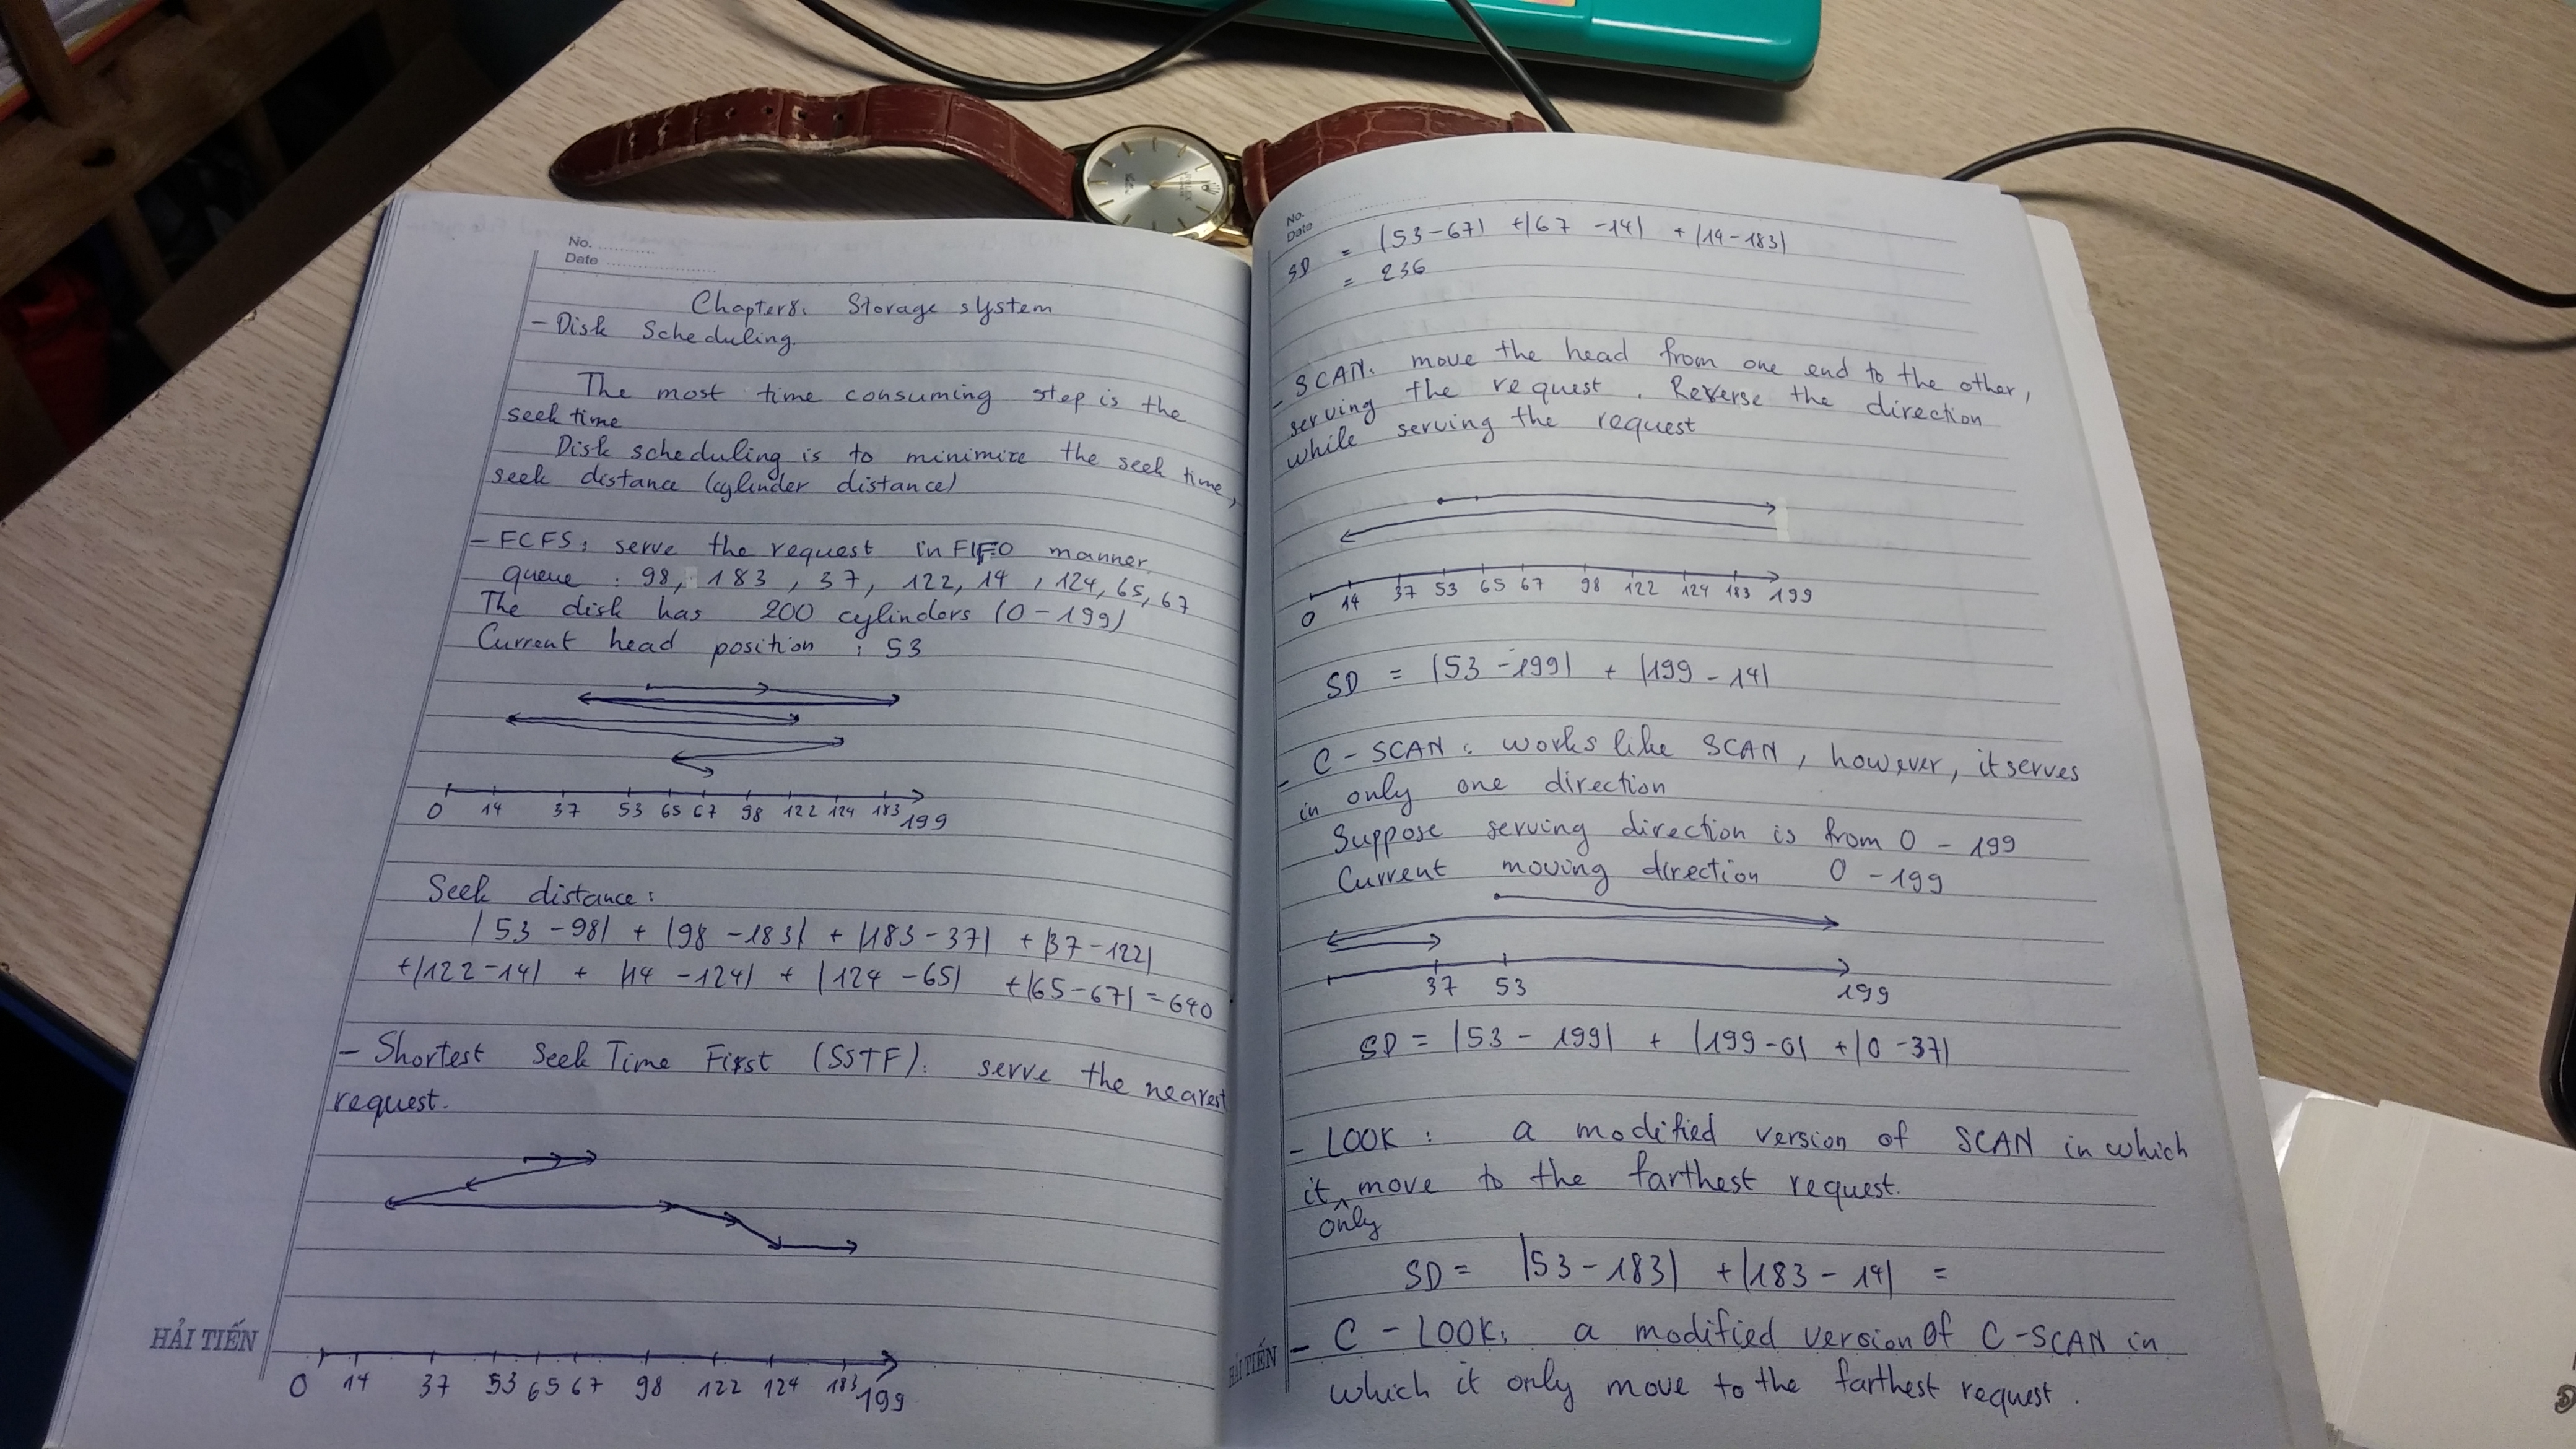 No. ..........
Date ....................
Chapter 8: Storage system
- Disk Scheduling.
The most time consuming step is the
seek time
Disk scheduling is to minimize the seek time,
seek distance (cylinder distance)
- FCFS: serve the request in FIFO manner
queue : 98, 183, 37, 122, 14, 124, 65, 67
The disk has 200 cylinders (0 - 199)
Current head position : 53
0 14 37 53 65 67 98 122 124 183 199
Seek distance:
|53 - 98| + |98 - 183| + |183 - 37| + |37 - 122|
+ |122 - 14| + |14 - 124| + |124 - 65| + |65 - 67| = 640
- Shortest Seek Time First (SSTF): serve the nearest
request.
0 14 37 53 65 67 98 122 124 183 199
HẢI TIẾN
No. ..........
Date ....................
SD = |53 - 67| + |67 - 14| + |14 - 183|
= 236
- SCAN: move the head from one end to the other,
serving the request. Reverse the direction
while serving the request
0 14 37 53 65 67 98 122 124 183 199
SD = |53 - 199| + |199 - 14|
- C - SCAN: works like SCAN, however, it serves
in only one direction
Suppose serving direction is from 0 - 199
Current moving direction 0 - 199
37 53 199
SD = |53 - 199| + |199 - 0| + |0 - 37|
- LOOK : a modified version of SCAN in which
it only move to the farthest request.
SD = |53 - 183| + |183 - 14| =
- C - LOOK: a modified version of C - SCAN in
which it only move to the farthest request.
HẢI TIẾN